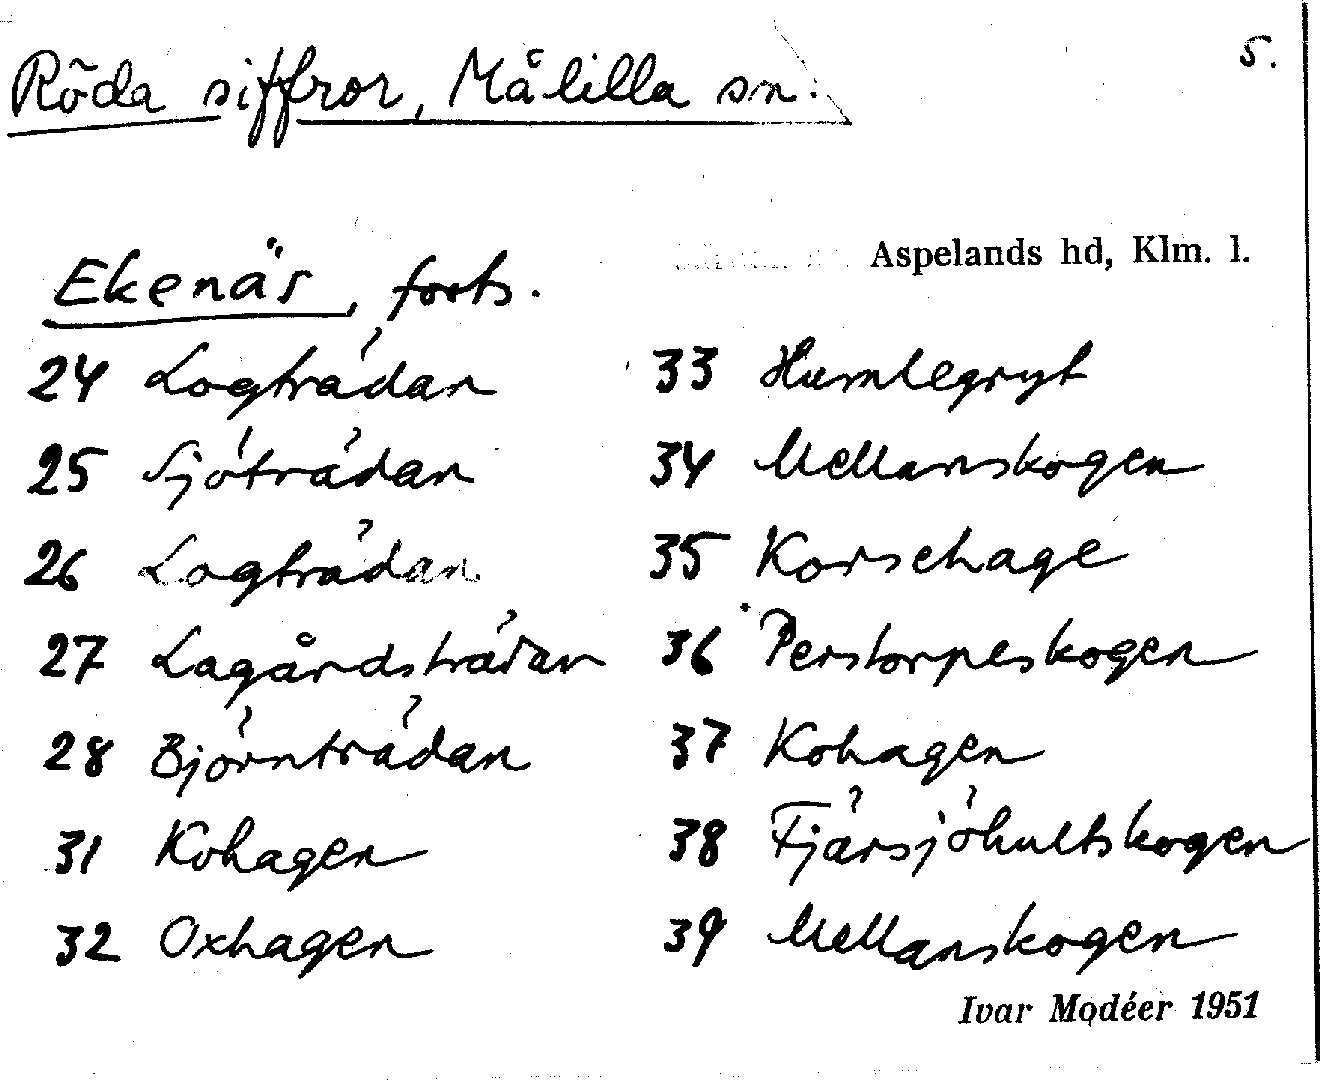 Röda siffror, Målilla sn.
5.
Aspelands hd, Klm. l.
Ekenäs, forts.
24 Logträdan
25 Sjöträdan
26 Logträdan
27 Lagårdsträdan
28 Björnträdan
31 Kohagen
32 Oxhagen
33 Humlegryt
34 Mellanskogen
35 Korsehage
36 Perstorpeskogen
37 Kohagen
38 Fjärsjöhultskogen
39 Mellanskogen
Ivar Modéer 1951